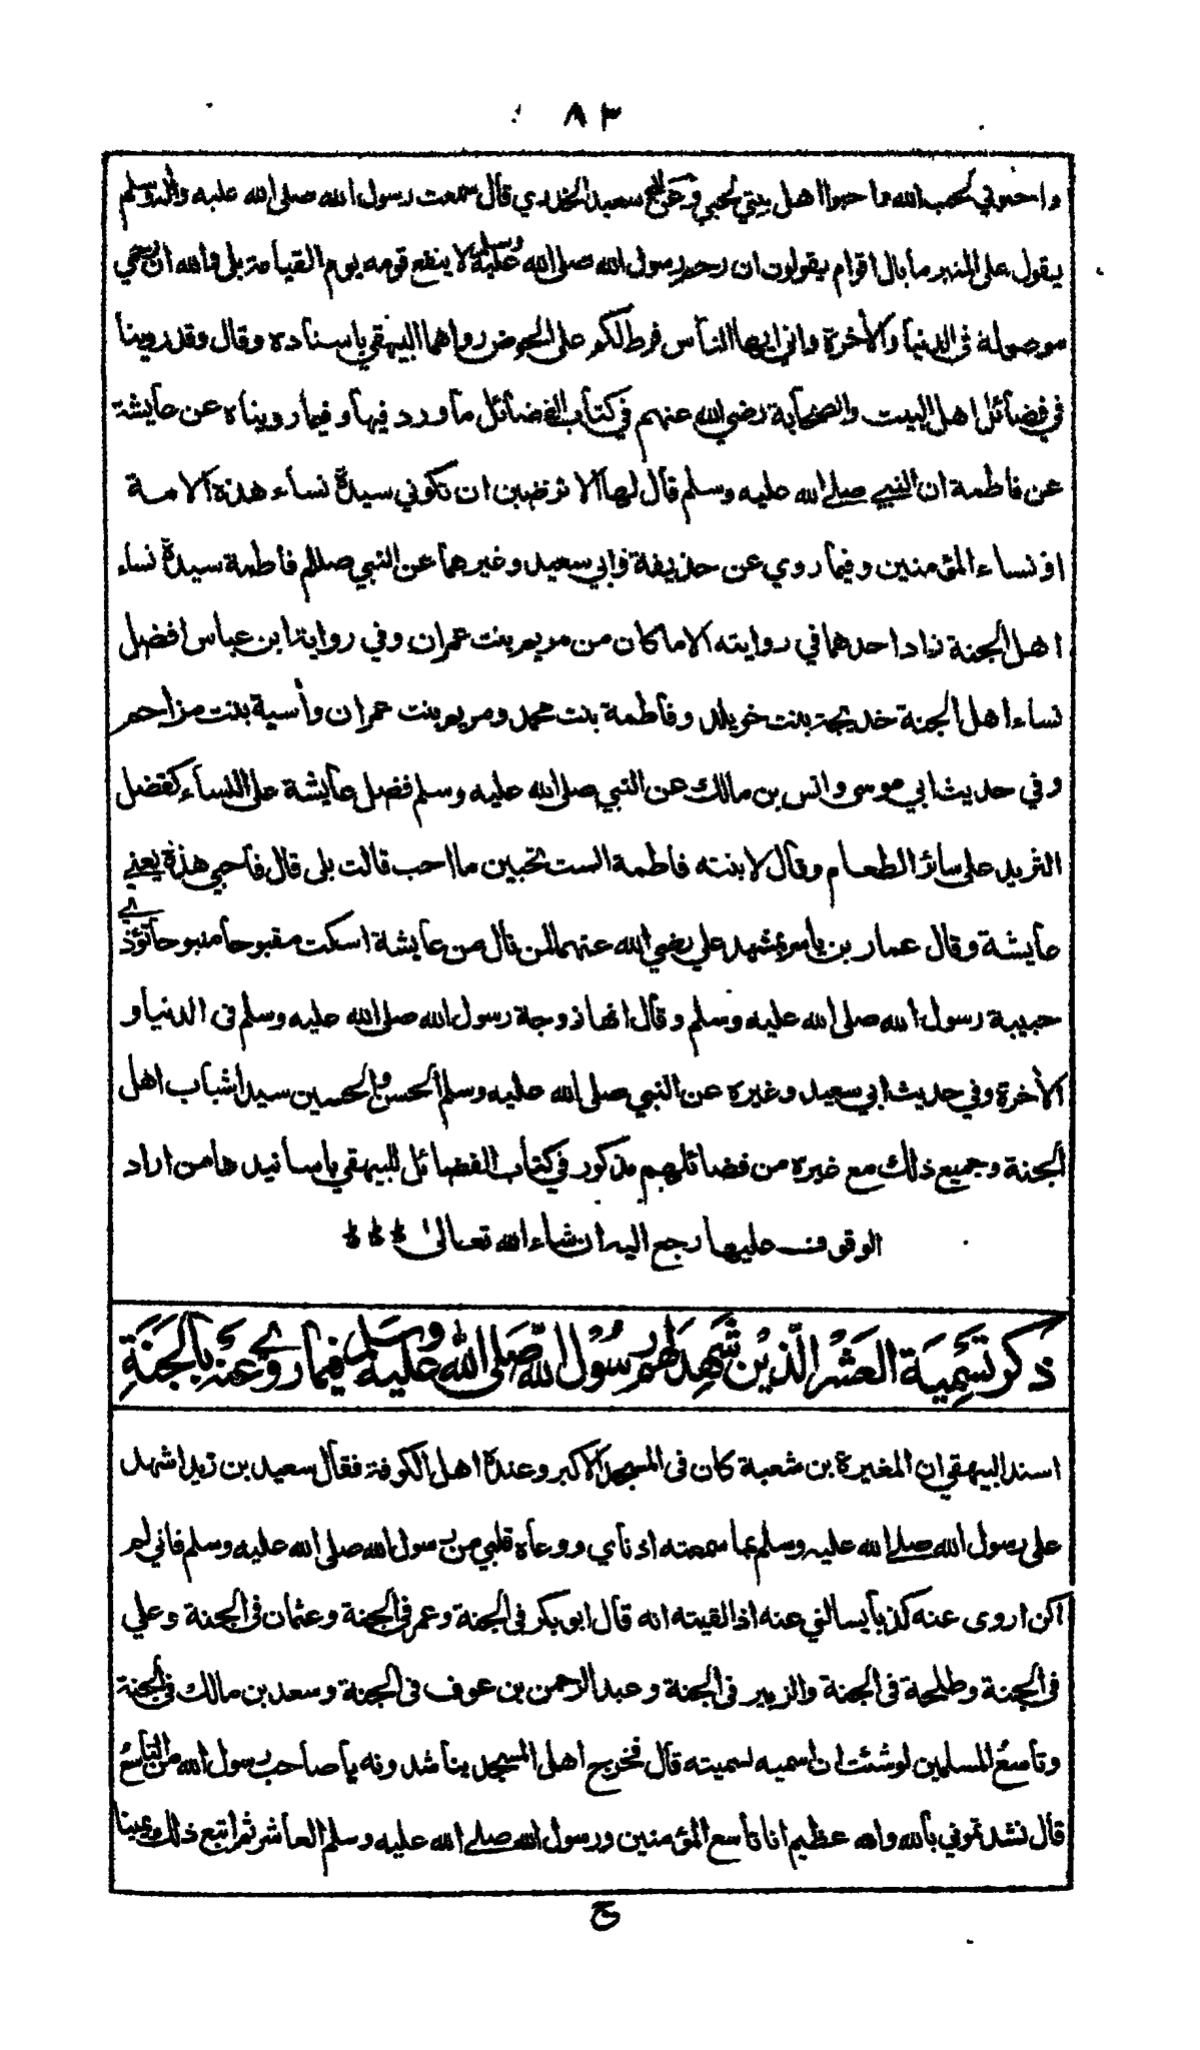 ٨٣
واحبوني لحب الله وما حبوا اهل بيتي لحبي وعن ابي سعيد الخدري قال سمعت رسول الله صلى الله عليه واله وسلم
يقول على المنبر ما بال اقوام يقولون ان رحم رسول الله صلى الله عليه وسلم لا ينفع قومه يوم القيامة بلى والله ان رحمي
موصولة فى الدنيا والأخرة واني ايها الناس فرط لكم على الحوض رواهما البيهقي باسناده وقال وقد روينا
في فضائل اهل البيت والصحابة رضي الله عنهم في كتاب الفضائل ما ورد فيها وفيما رويناه عن عايشة
عن فاطمة ان النبي صلى الله عليه وسلم قال لها الا ترضين ان تكوني سيدة نساء هذه الامة
او نساء المؤمنين وفيما روي عن حذيفة وابي سعيد وغيرهما عن النبي صلالم فاطمة سيدة نساء
اهل الجنة زاد احدهما في روايته الا ما كان من مريم بنت عمران وفي رواية ابن عباس افضل
نساء اهل الجنة خديجة بنت خويلد وفاطمة بنت محمد ومريم بنت عمران وأسية بنت مزاحم
وفي حديث ابي موسى وانس بن مالك عن النبي صلى الله عليه وسلم فضل عايشة على النساء كفضل
الثريد على سائر الطعام وقال لابنته فاطمة الست تحبين ما احب قالت بلى قال فاحبي هذه يعني
عايشة وقال عمار بن ياسر بمشهد علي رضي الله عنهما لمن نال من عايشة اسكت مقبوحا منبوحا تؤذي
حبيبة رسول الله صلى الله عليه وسلم وقال انها زوجة رسول الله صلى الله عليه وسلم فى الدنيا و
الأخرة وفي حديث ابي سعيد وغيره عن النبي صلى الله عليه وسلم الحسن والحسين سيدا شباب اهل
الجنة وجميع ذلك مع غيره من فضائلهم مذكور في كتاب الفضائل للبيهقي باسانيدها من اراد
الوقوف عليها رجع اليه ان شاء الله تعالى
ذكر تَسْمِيَة العَشْر الَّذِيْن شَهِدَ لهم رسُوْل اللّٰه صَلى الله عليه وسلم فيما روي عنْه بالجَنَةِ
اسند البيهقي ان المغيرة بن شعبة كان فى المسجد الاكبر وعنده اهل الكوفة فقال سعيد بن زيد اشهد
على رسول الله صلى الله عليه وسلم بما سمعته اذناي ووعاه قلبي من رسول الله صلى الله عليه وسلم فاني لم
اكن اروى عنه كذبا يسالني عنه اذا لقيته انه قال ابو بكر فى الجنة وعمر فى الجنة وعثمان فى الجنة وعلي
فى الجنة وطلحة فى الجنة والزبير فى الجنة وعبد الرحمن بن عوف فى الجنة وسعد بن مالك فى الجنة
وتاسعُ المسلمين لو شئت ان اسميه لسميته قال فخرج اهل المسجد يناشدونه يا صاحب رسول الله من التاسعُ
قال نشدتموني بالله والله عظيم انا تاسع المؤمنين ورسول الله صلى الله عليه وسلم العاشر ثم اتبع ذلك يمينا
ج